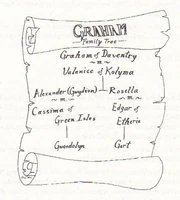 GRAHAM
Family Tree
Graham of Daventry
~m~
Valanice of Kolyma
Alexander (Gwydion) Rosella
~m~ ~m~
Cassima of Edgar of
Green Isles Etheria
Gwendolyn Gart